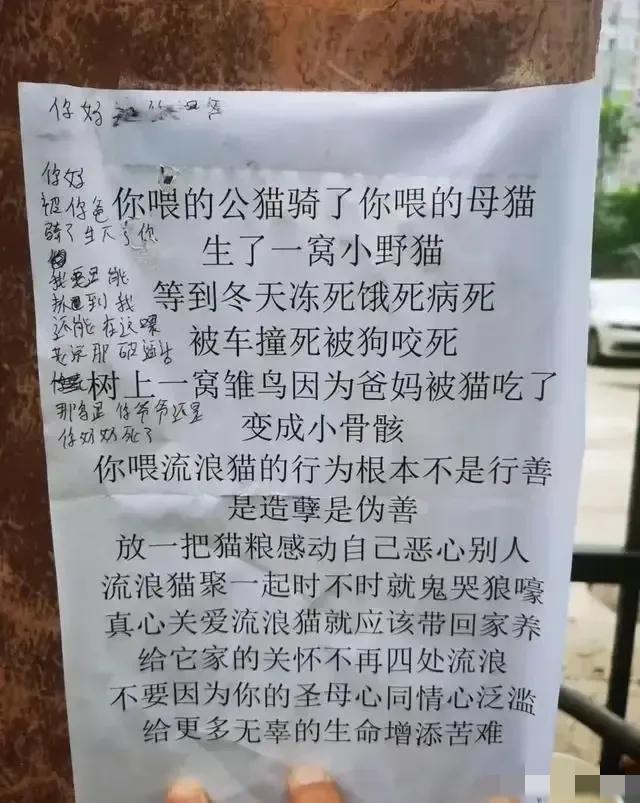 你好
你好
被你爸
骑了生下了你
我要是能
还能在这嘿
那肯定你爷爷还是
你奶奶死了
你喂的公猫骑了你喂的母猫
生了一窝小野猫
等到冬天冻死饿死病死
被车撞死被狗咬死
树上一窝雏鸟因为爸妈被猫吃了
变成小骨骸
你喂流浪猫的行为根本不是行善
是造孽是伪善
放一把猫粮感动自己恶心别人
流浪猫聚一起时不时就鬼哭狼嚎
真心关爱流浪猫就应该带回家养
给它家的关怀不再四处流浪
不要因为你的圣母心同情心泛滥
给更多无辜的生命增添苦难